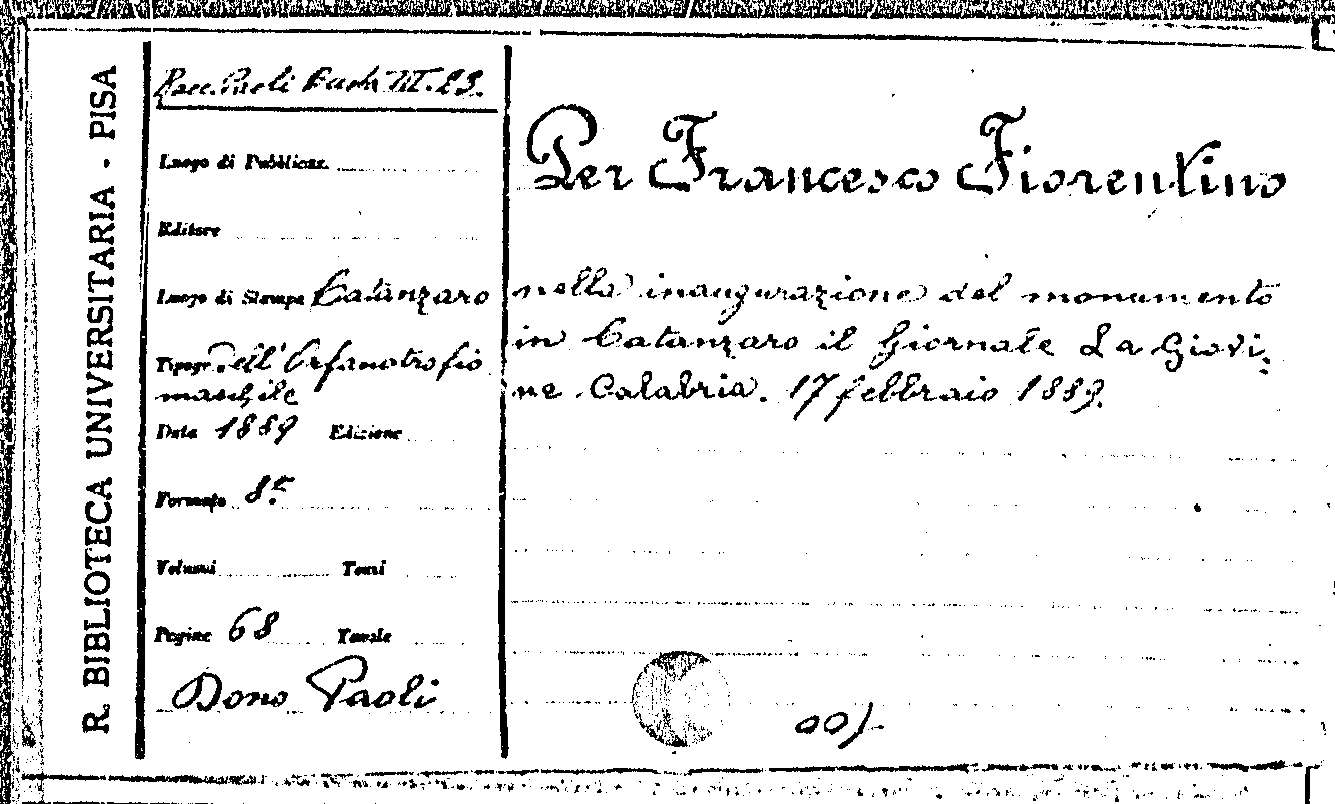 R. BIBLIOTECA UNIVERSITARIA - PISA
Racc. Paoli III. 23.
Luogo di Pubblicaz.
Editore
Luogo di Stampa Catanzaro
Tipogr. dell'Orfanotrofio
maschile
Data 1889 Edizione
Formato 8.º
Volumi Tomi
Pagine 68 Tavole
Dono Paoli
Per Francesco Fiorentino
nella inaugurazione del monumento
in Catanzaro il Giornale La Giovi-
ne Calabria. 17 febbraio 1889.